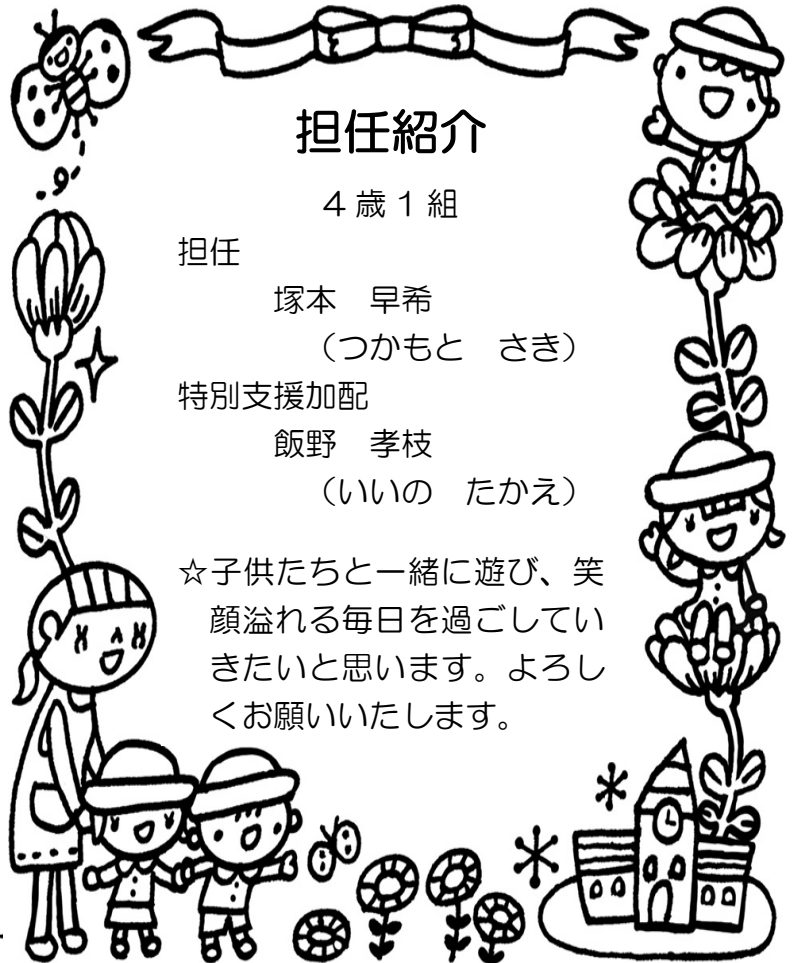 担任紹介
4歳1組
担任
塚本　早希
（つかもと　さき）
特別支援加配
飯野　孝枝
（いいの　たかえ）
☆子供たちと一緒に遊び、笑
顔溢れる毎日を過ごしてい
きたいと思います。よろし
くお願いいたします。